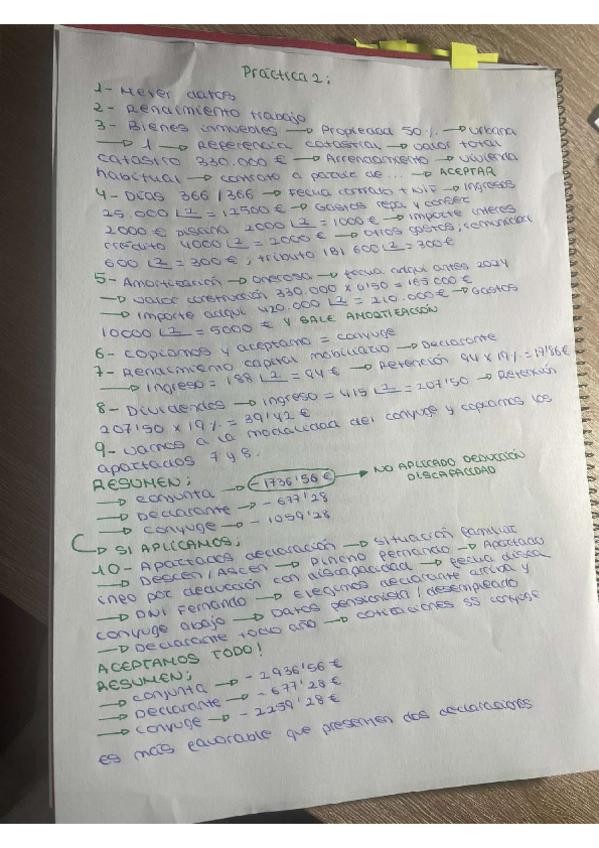 Práctica 2:
1- Meter datos
2- Rendimiento trabajo
3- Bienes inmuebles → Propiedad 50% → urbana
→ 1 → Referencia catastral → valor total
catastro 330.000 € → Arrendamiento → vivienda
habitual → contrato a partir de ... → ACEPTAR
4- Días 366/366 → Fecha contrato + NIF → Ingresos
25.000 |2 = 12500 € → Gastos repa y conser
2000 € 2000 |2 = 1000 € → Importe interes
crédito 4000 |2 = 2000 € → Otros gastos,
600 |2 = 300 €, tributo IBI 600 |2 = 300 €
5- Amortización → Onerosa → fecha adqui antes 2024
→ valor construcción 330.000 × 0'50 = 165.000 €
→ Importe adqui 420.000 |2 = 210.000 € → Gastos
10000 |2 = 5000 € Y SALE AMORTIZACIÓN
6- Copiamos y aceptamos = conyuge
7- Rendimiento capital mobiliario → Declarante
→ Ingreso = 188 |2 = 94 € → Retención 94 × 19% = 17'86 €
8- Dividendos → Ingreso = 415 |2 = 207'50 → Retención
207'50 × 19% = 39'42 €
9- Vamos a la modalidad del conyuge y copiamos los
apartados 7 y 8.
RESUMEN:
→ conjunta → -1736'56 € → NO APLICADO DEDUCCIÓN
DISCAPACIDAD
→ Declarante → -677'28
→ conyuge → -1059'28
→ SI APLICAMOS:
10- Apartados declaración → situación familiar
→ Descen/Ascen → Pincho Fernando → Apartado
por deducción con discapacidad → fecha disca
→ DNI Fernando → Elegimos declarante arriba y
conyuge abajo → Datos pensionista/desempleado
→ Declarante todo año → cotizaciones SS conyuge
ACEPTAMOS TODO!
RESUMEN:
→ conjunta → -2936'56 €
→ Declarante → -677'28 €
→ conyuge → -2259'28 €
es más favorable que presenten dos declaraciones